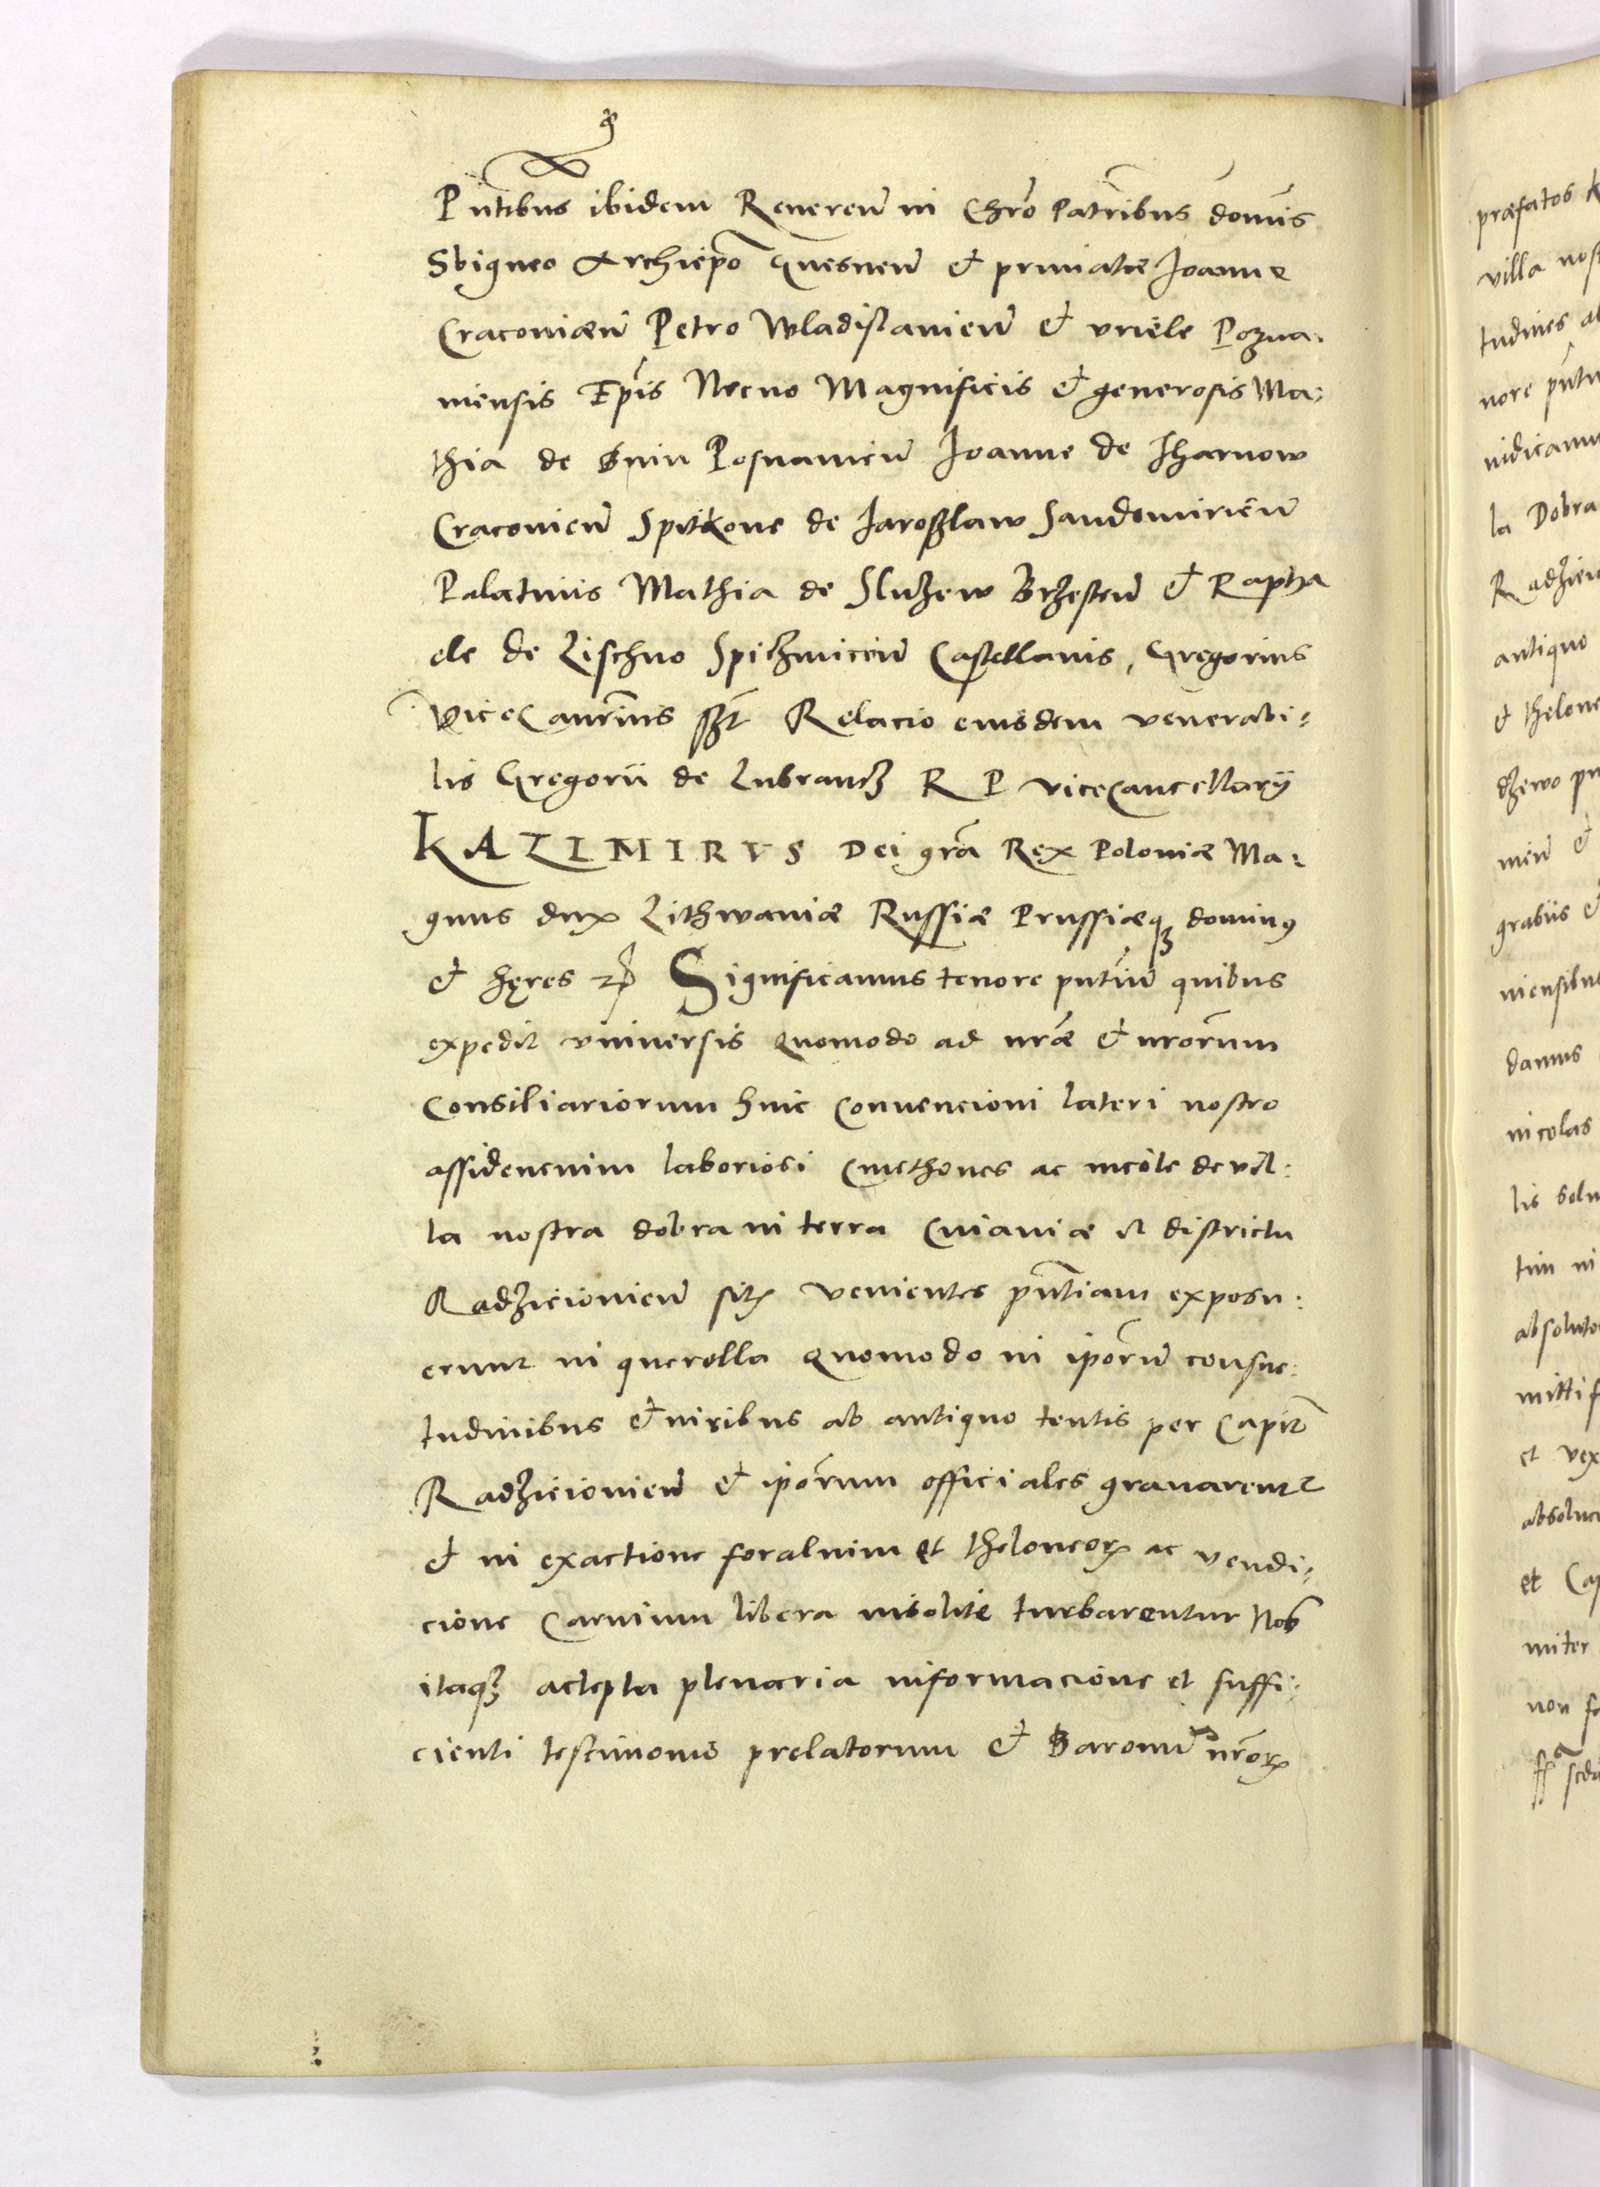 Pntibus ibidem Reueren in Chro Patribus domis
Sbigneo Archiepo Gnesnen et primatæ Joanne
Cracouiæn Petro Wladislauien et vriele Pozna-
niensis Epis Necno Magnificis et generosis Ma-
thia de Bnin Posnanien Joanne de Tharnow
Cracouien Spitkone de Jaroslaw Sandomirien
Palatinis Mathia de Sluzew Brzesten et Rapha
ele de Lischno Spitzmirien Castellanis, Gregorius
ViceCancrius sszt Relacio eiusdem venerabi-
lis Gregorii de Lubrancz R P viceCancellarij
KAZIMIRVS Dei gra Rex Poloniæ Ma-
gnus dux Lithwaniæ Russiæ Prussiæqz dominus
et hęres zc Significamus tenore pntium quibus
expedit vniuersis Quomodo ad nræ et nrorum
Consiliariorum huic Conuencioni lateri nostro
assidencium laboriosi Cmethones ac incole de vil-
la nostra dobra in terra Cuiauiæ et districtu
Radzieiouien sitis venientes pntiam exposu-
erunt in querella Quomodo in iporum consue-
tudinibus et iuribus ab antiquo tentis per Capit
Radzieiouien et iporum officiales grauarentur
et in exactione foralium et theloneorum ac vendi-
cione Carnium libera insolite turbarentur Nos
itaqz accepta plenaria informacione et suffi-
cienti testimonio prelatorum et Baronum nrorum
præfatos
villa nos
tudines ab
nore pntiu
indicamu
la Dobra
Radzieio
antiquo
et thelone
dzewo
nien et
grabiis et
niensibus
damus
nicolas
lis
tim in
absoluto
mitti
et vex
absolu
et Cap
miter
non